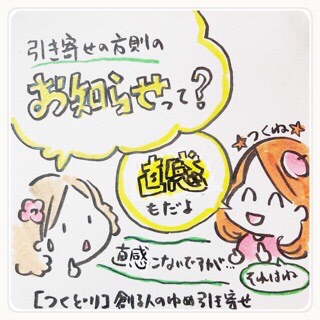 引き寄せの方則の
お知らせって?
つくね
直感
もだよ
直感こないですが…
それはね
[つくどり]創る人のゆめ引き寄せ